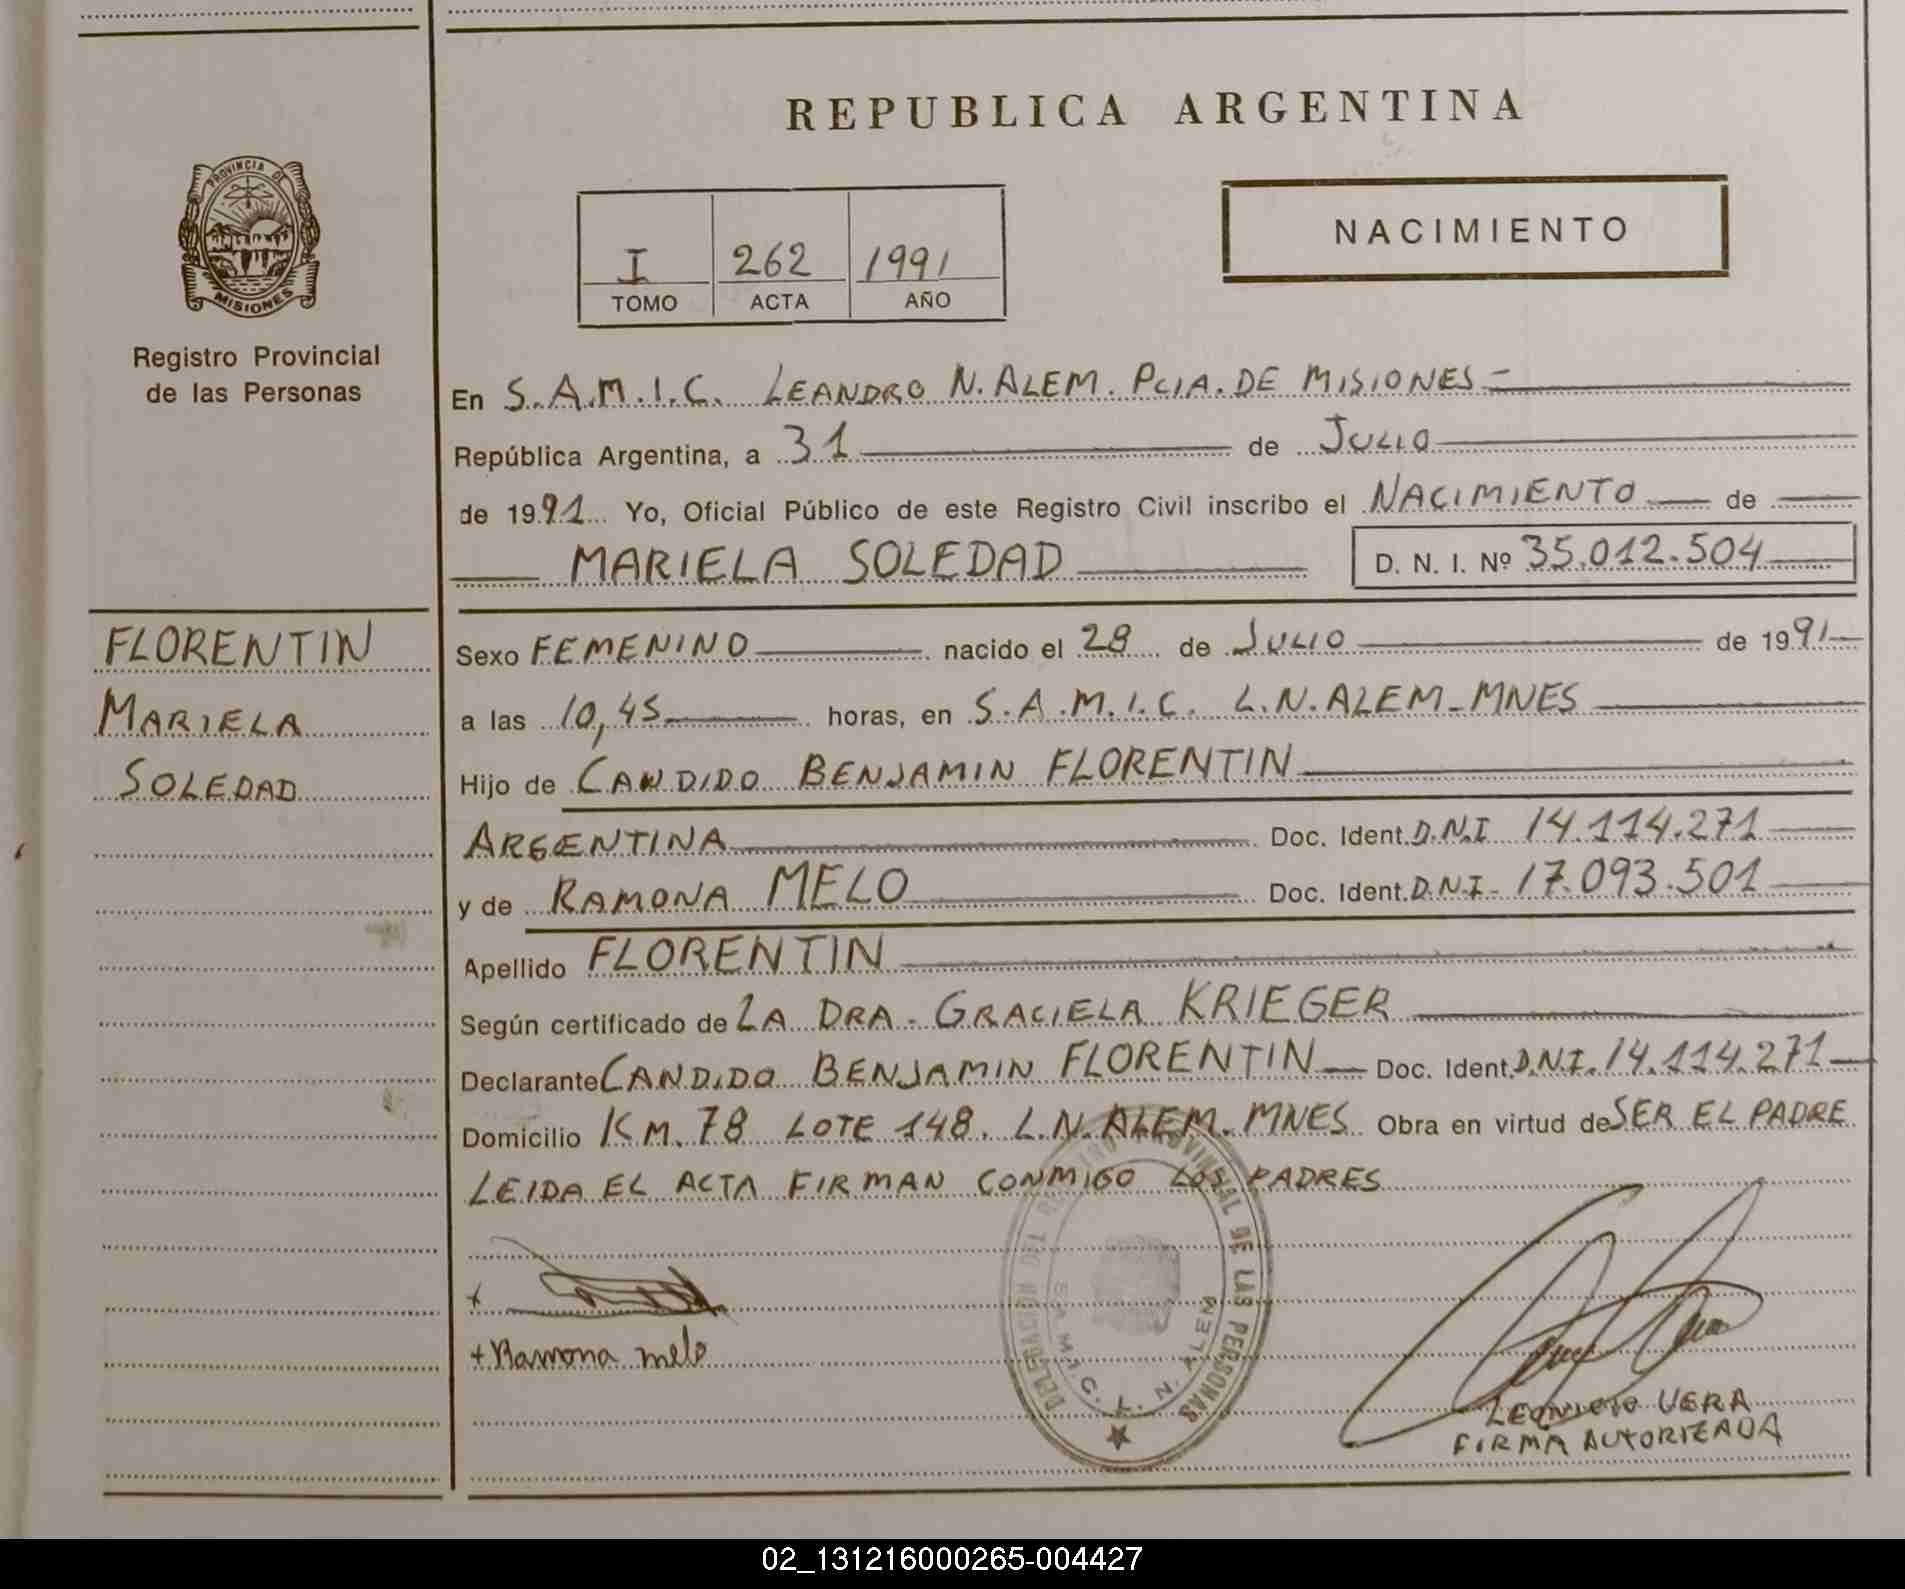 REPUBLICA ARGENTINA
PROVINCIA DE MISIONES
Registro Provincial
de las Personas
I 262 1991
TOMO ACTA AÑO
NACIMIENTO
En S.A.M.I.C. LEANDRO N. ALEM. PCIA. DE MISIONES-
República Argentina, a 31 de JULIO
de 1991 Yo, Oficial Público de este Registro Civil inscribo el NACIMIENTO de
MARIELA SOLEDAD D. N. I. Nº 35.012.504
FLORENTIN
MARIELA
SOLEDAD
Sexo FEMENINO nacido el 28 de JULIO de 1991
a las 10,45 horas, en S.A.M.I.C. L.N. ALEM-MNES
Hijo de CANDIDO BENJAMIN FLORENTIN
ARGENTINA Doc. Ident. D.N.I 14.114.271
y de RAMONA MELO Doc. Ident. D.N.I- 17.093.501
Apellido FLORENTIN
Según certificado de LA DRA. GRACIELA KRIEGER
Declarante CANDIDO BENJAMIN FLORENTIN Doc. Ident. D.N.I. 14.114.271
Domicilio KM. 78 LOTE 148. L.N. ALEM. MNES Obra en virtud de SER EL PADRE
LEIDA EL ACTA FIRMAN CONMIGO LOS PADRES
+
+ Ramona melo
DELEGACION DEL REGISTRO PROVINCIAL DE LAS PERSONAS
L. N. ALEM
VERA
FIRMA AUTORIZADA
02_131216000265-004427